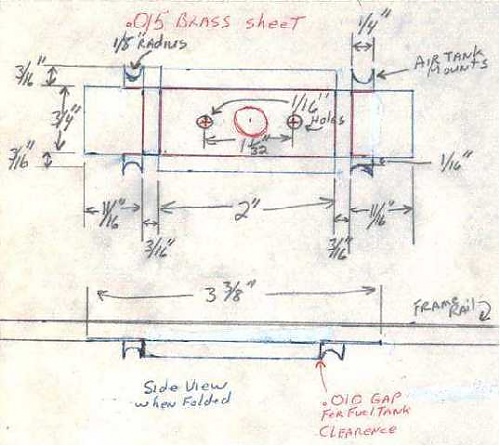 .015 BRASS sheet
1/8" RADIUS
1/4"
3/16"
AIR TANK
MOUNTS
3/4"
1/16"
HOLES
3/16"
1/16"
11/16"
2"
11/16"
3/16"
3/16"
3 3/8"
FRAME
RAIL
Side View
when Folded
.010 GAP
For Fuel TANK
CLEARENCE